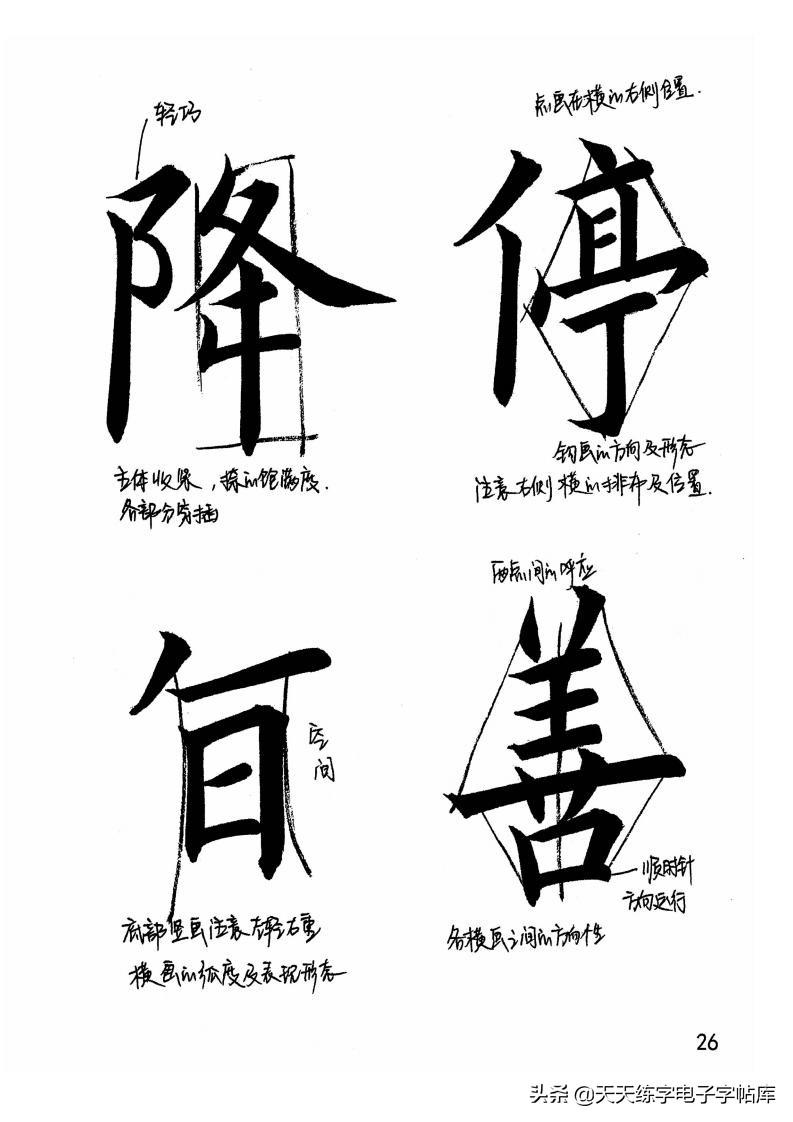 轻巧
降
主体收紧，捺的饱满度.
各部分穿插
点画在横的右侧位置.
停
钩画的方向及形态
注意右侧横的排布及位置.
㫖
空
间
底部竖画注意左轻右重
横画的弧度及表现形态
两点间的呼应
善
顺时针
方向运行
各横画之间的方向性
26
头条 @天天练字电子字帖库